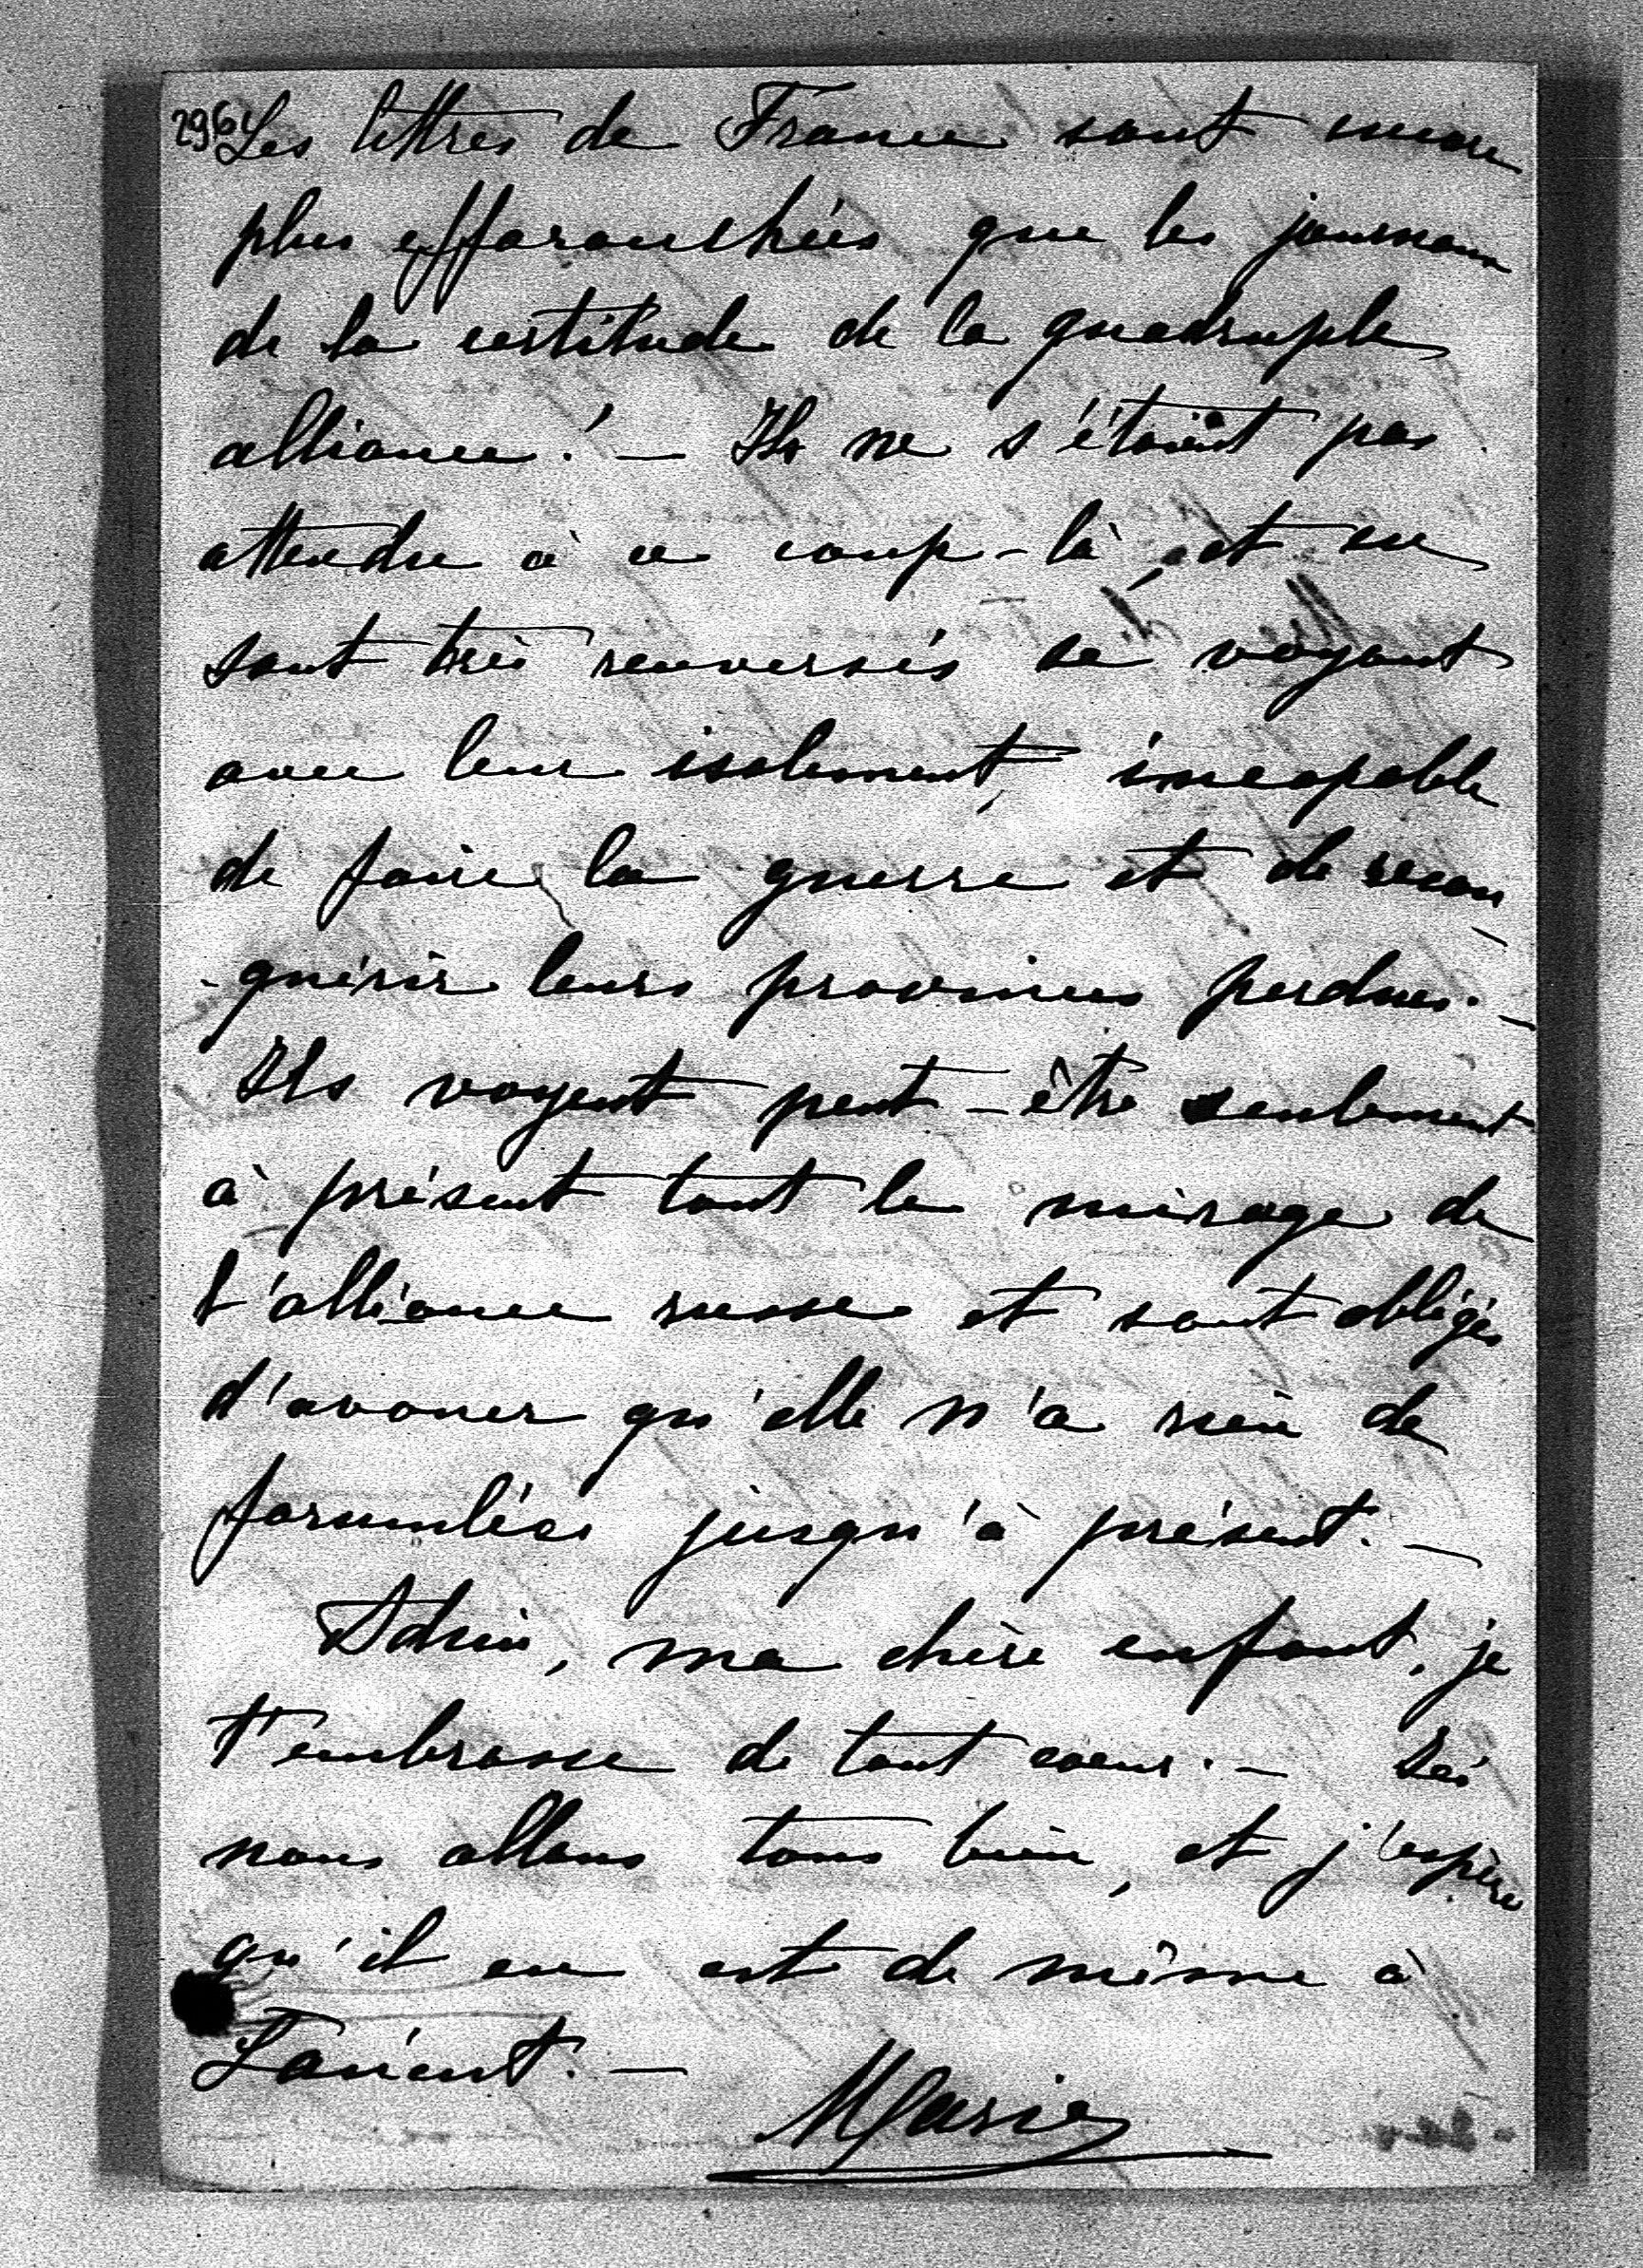 296 Les lettres de France sont encore
plus effarouchées que les journaux
de la certitude de la quadruple
alliance! — Ils ne s'étaient pas
attendu à ce coup-là, et en
sont très renversés se voyant
avec leur isolement, incapable
de faire la guerre et de recon-
-quérir leurs provinces perdues. —
Ils voyent peut-être seulement
à présent tout le mirage de
l'alliance russe et sont obligés
d'avouer qu'elle n'a rien de
formulée jusqu'à présent. —
Adieu, ma chère enfant, je
t'embrasse de tout coeur. —
nous allons tous bien, et j'espère
qu'il en est de même à
Marie